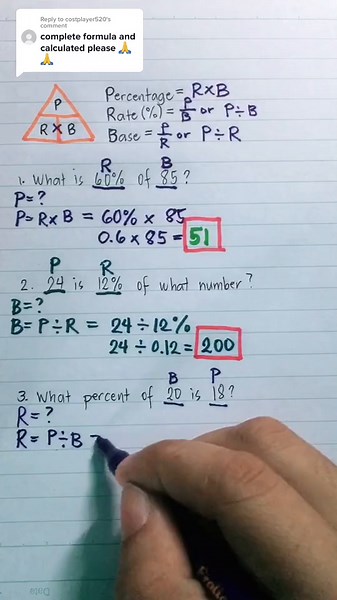 Reply to costplayer520's
comment
complete formula and
calculated please 🙏
🙏
P
R x B
Percentage = R x B
Rate (%) = P/B or P ÷ B
Base = P/R or P ÷ R
R B
1. What is 60% of 85?
P = ?
P = R x B = 60% x 85
0.6 x 85 = 51
P R
2. 24 is 12% of what number?
B = ?
B = P ÷ R = 24 ÷ 12%
24 ÷ 0.12 = 200
B P
3. What percent of 20 is 18?
R = ?
R = P ÷ B =